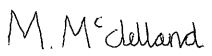 M. McClelland